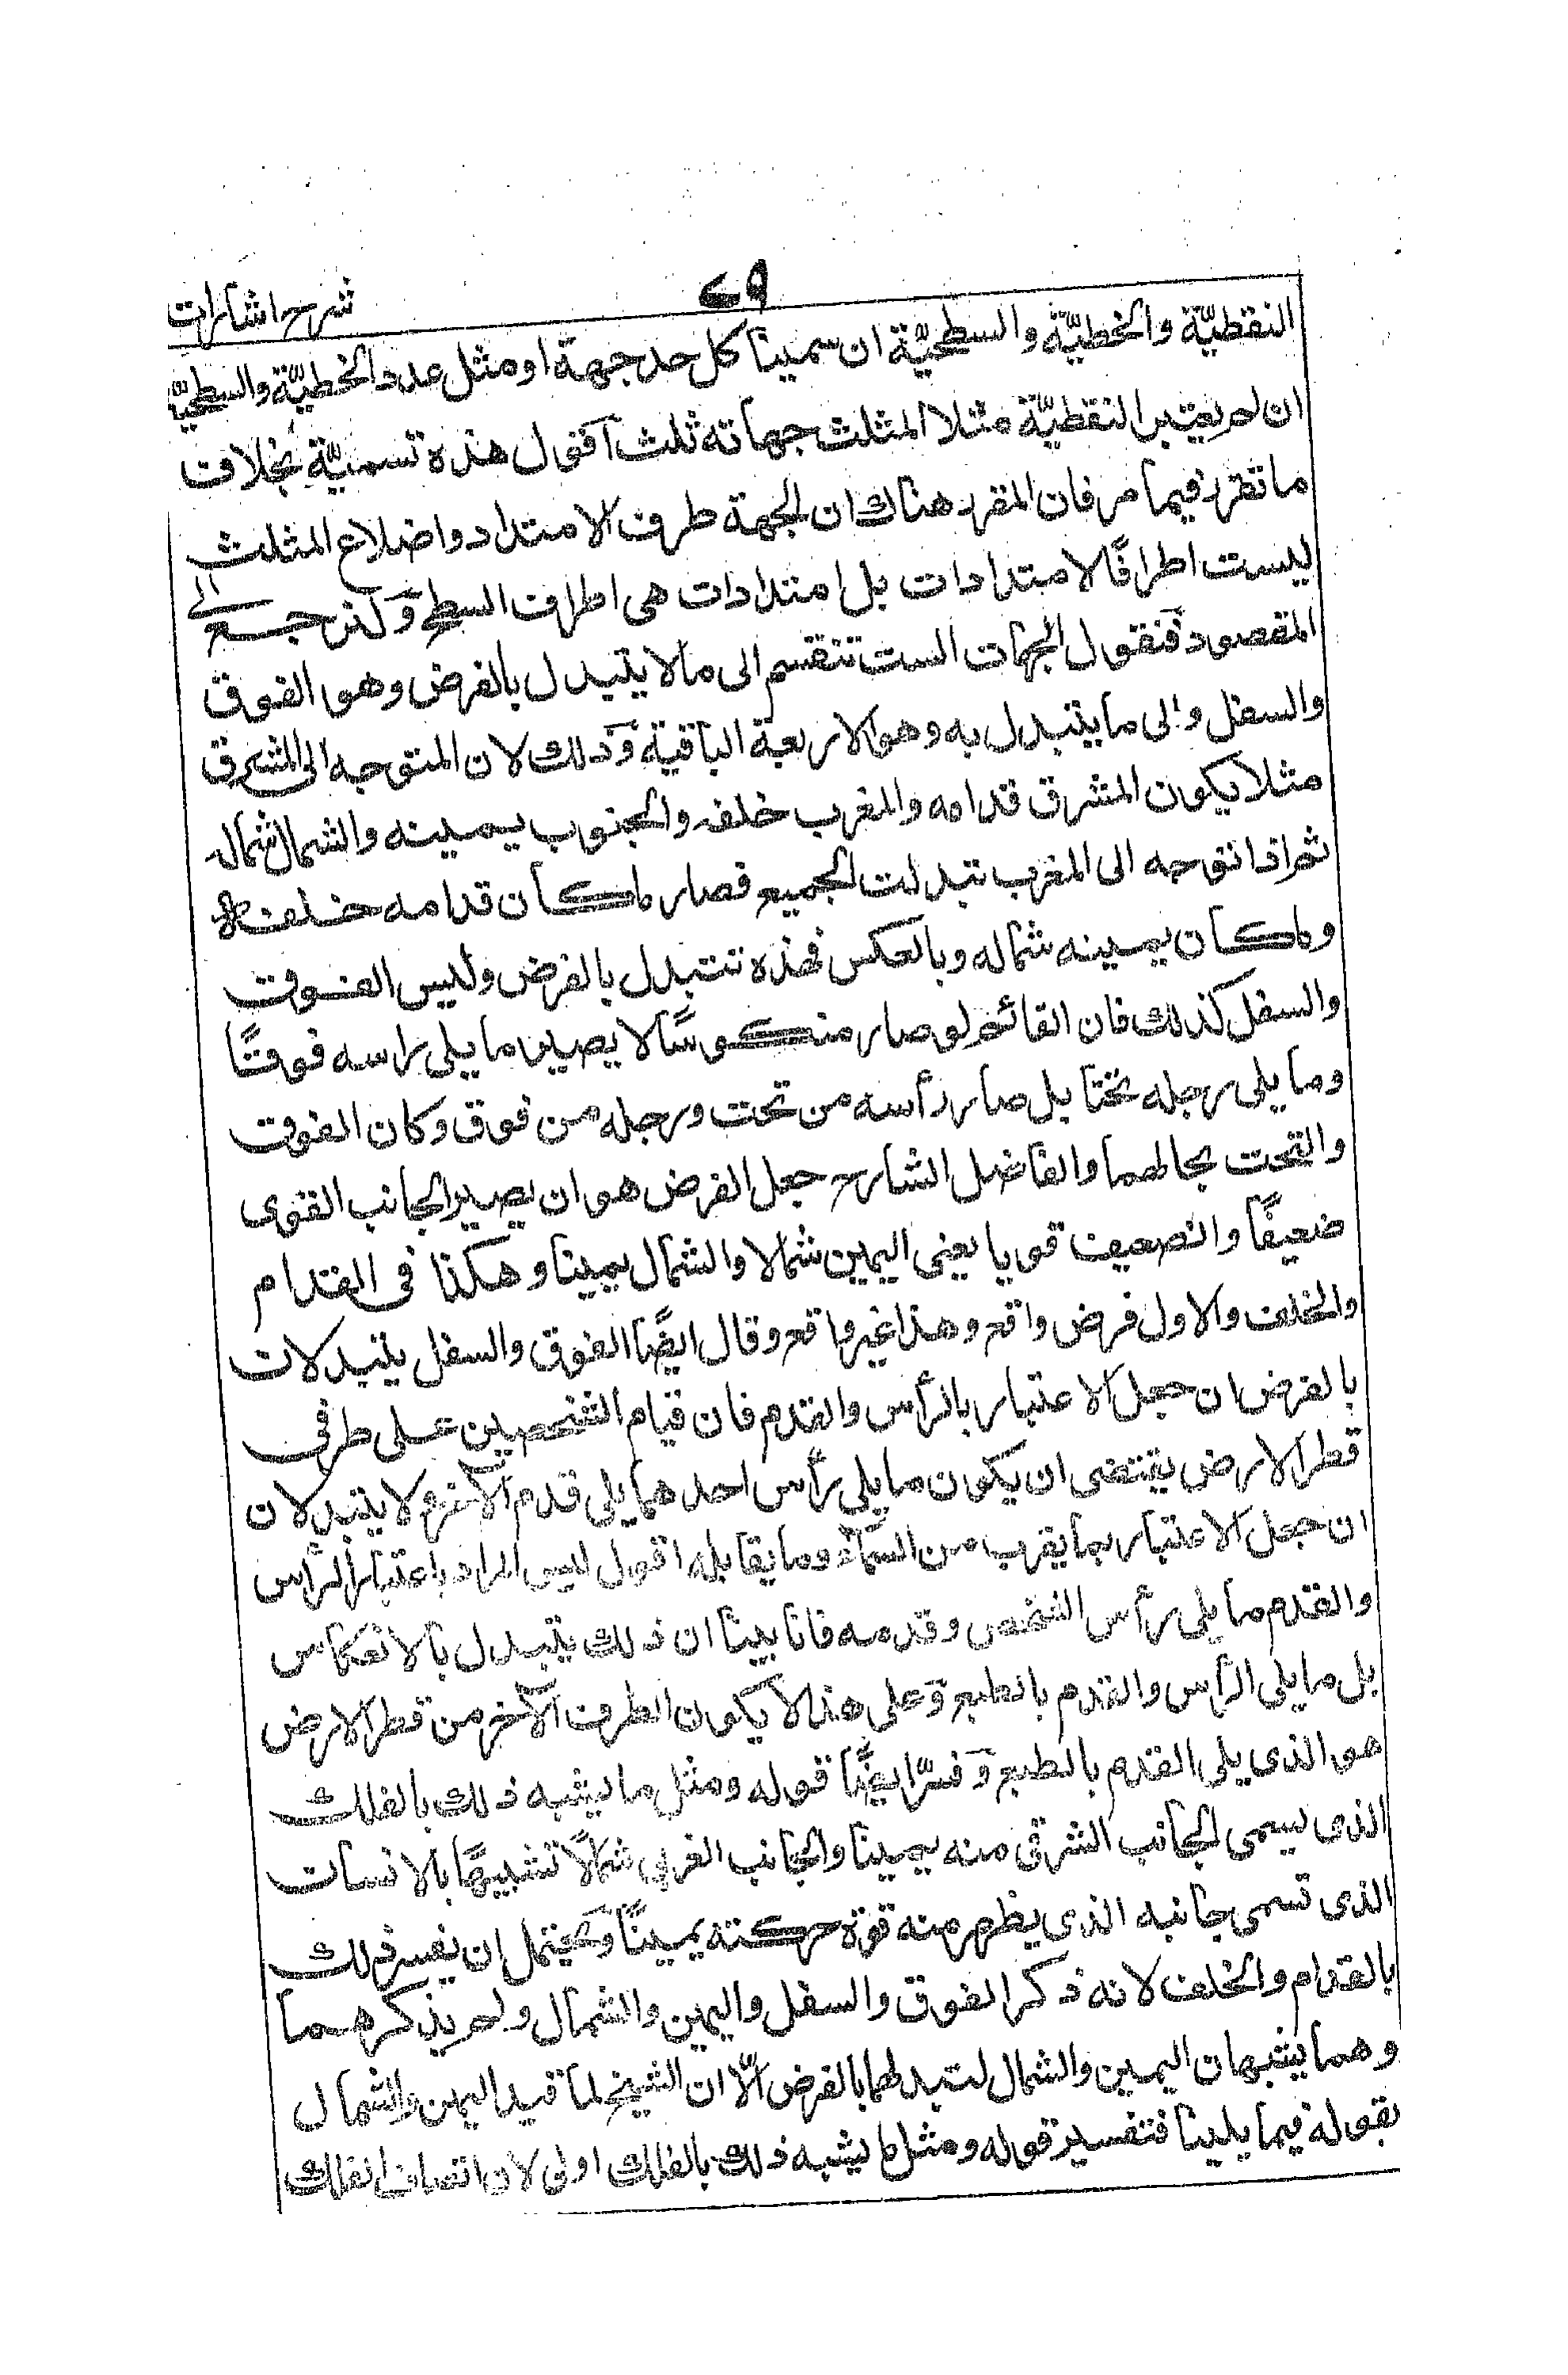 شرح اشارات
٢٩
النقطيّة والخطيّة والسطحيّة ان سمينا كل حد جهة او مثل عدد الخطيّة والسطحيّة
ان لم يعتبر النقطيّة مثلا المثلث جهاته ثلث اقول هذه تسميّة بخلاف
ما تقرر فيما مر فان المقرر هناك ان الجهة طرف الامتداد واضلاع المثلث
ليست اطرافًا لامتدادات بل امتدادات هى اطراف السطح ولنرجع الى
المقصود فنقول الجهات الست تنقسم الى ما لا يتبدل بالفرض وهو الفوق
والسفل والى ما يتبدل به وهو الاربعة الباقية وذلك لان المتوجه الى المشرق
مثلا يكون المشرق قدامه والمغرب خلفه والجنوب يمينه والشمال شماله
ثم اذا توجه الى المغرب تبدلت الجميع فصار ما كان قدامه خلفه
وما كان يمينه شماله وبالعكس فهذه تتبدل بالفرض وليس الفوق
والسفل كذلك فان القائم لو صار منكوسًا لا يصير ما يلى راسه فوقًا
وما يلى رجله تحتا بل صار رأسه من تحت ورجله من فوق وكان الفوق
والتحت بحالهما والفاضل الشارح جعل الفرض هو ان يصير الجانب القوى
ضعيفًا والضعيف قويا يعنى اليمين شمالا والشمال يمينا وهكذا فى القدام
والخلف والاول فرض واقع وهذا غير واقع وقال ايضًا الفوق والسفل يتبدلان
بالفرض ان جعل الاعتبار بالرأس والقدم فان قيام الشخصين على طرفى
قطر الارض يقتضى ان يكون ما يلى رأس احدهما يلى قدم الآخر ولا يتبدلان
ان جعل الاعتبار بما يقرب من السماء وما يقابله اقول ليس المراد باعتبار الرأس
والقدم ما يلى رأس الشخص وقدمه فانا بينا ان ذلك يتبدل بالانعكاس
بل ما يلى الرأس والقدم بالطبع وعلى هذا لا يكون الطرف الآخر من قطر الارض
هو الذى يلى القدم بالطبع وفسّر ايضًا قوله ومثل ما يشبه ذلك بالفلك
الذى يسمى الجانب الشرقى منه يمينا والجانب الغربى شمالاً تشبيهًا بالانسان
الذى تسمى جانبه الذى يظهر منه قوة حركته يمينًا ويحتمل ان يفسر ذلك
بالقدام والخلف لانه ذكر الفوق والسفل واليمين والشمال ولم يذكرهما
وهما يشبهان اليمين والشمال لتبدلهما بالفرض الّا ان الشيخ لما قيد اليمين والشمال
بقوله فيما يلينا فتفسير قوله ومثل ما يشبه ذلك بالفلك اولى لان اتصاف الفلك